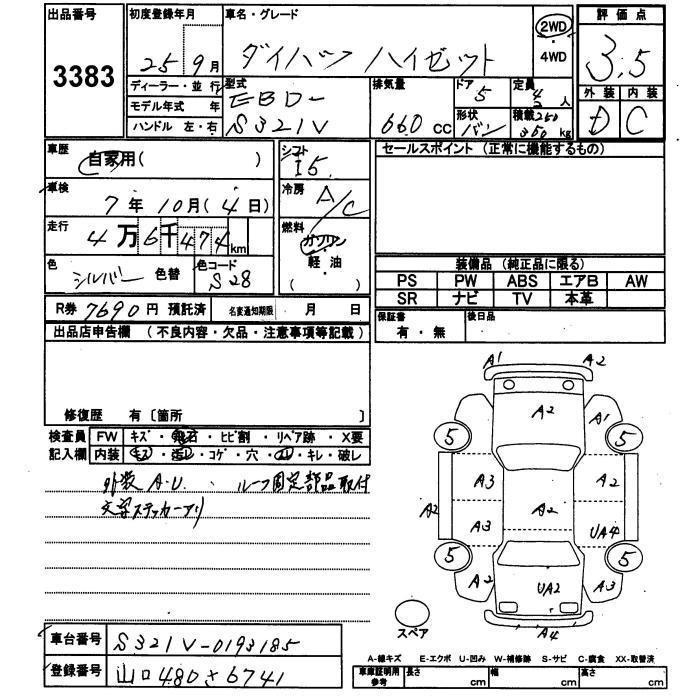 出品番号 3383
初度登録年月 25 9月
車名・グレード ダイハツ ハイゼット
2WD ・ 4WD
評価点 3.5
外装 D 内装 C
ディーラー・並行
モデル年式 年
ハンドル 左・右
型式 EBD- S321V
排気量 660 cc
ドア 5
形状 バン
定員 4 2 人
積載 250 350 kg
車歴 自家用( )
シフト I5
セールスポイント (正常に機能するもの)
車検 7年 10月(4日)
冷房 A/C
走行 4万6千474km
燃料 ガソリン ・ 軽油 ( )
色 シルバー 色替
色コード S28
装備品 (純正品に限る)
PS PW ABS エアB AW
SR ナビ TV 本革
R券 7690円 預託済 名変通知期限 月 日
保証書 有・無
後日品
出品店申告欄 (不良内容・欠品・注意事項等記載)
修復歴 有〔箇所 〕
検査員記入欄
FW キズ・飛石・ヒビ割・リペア跡・X要
内装 キズ・汚レ・コゲ・穴・スレ・キレ・破レ
外装 A.U. ルーフ固定部品取付
文字ステッカーアリ
A1 A2
A2 A1
5 5
A3 A2
A2 A3 A2 UA4
5 5
A2 UA2 A3
A4
スペア
車台番号 S321V-0193185
登録番号 山口480さ6741
A-線キズ E-エクボ U-凹み W-補修跡 S-サビ C-腐食 XX-取替済
車庫証明用参考 長さ cm 幅 cm 高さ cm